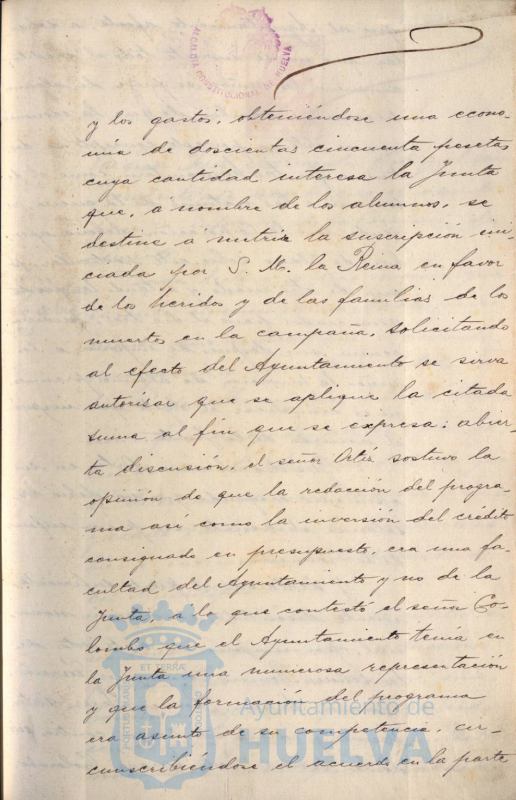 ALCALDIA CONSTITUCIONAL DE HUELVA
y los gastos, obteniéndose una econo-
mía de doscientas cincuenta pesetas
cuya cantidad interesa la Junta
que, á nombre de los alumnos, se
destine á nutrir la suscripción ini-
ciada por S. M. la Reina en favor
de los heridos y de las familias de los
muertos en la campaña, solicitando
al efecto del Ayuntamiento se sirva
autorisar que se aplique la citada
suma al fin que se expresa: abier-
ta discusión, el señor Ortiz sostuvo la
opinión de que la redacción del progra-
ma así como la inversión del crédito
consignado en presupuesto, era una fa-
cultad del Ayuntamiento y no de la
Junta, a lo que contestó el señor Co-
lombo que el Ayuntamiento tenía en
la Junta una numerosa representación
y que la formación del programa
era asunto de su competencia, cir-
cunscribiéndose el acuerdo en la parte
ET TERRÆ
PORTUS MARIS
CUSTODIO
Ayuntamiento de
HUELVA